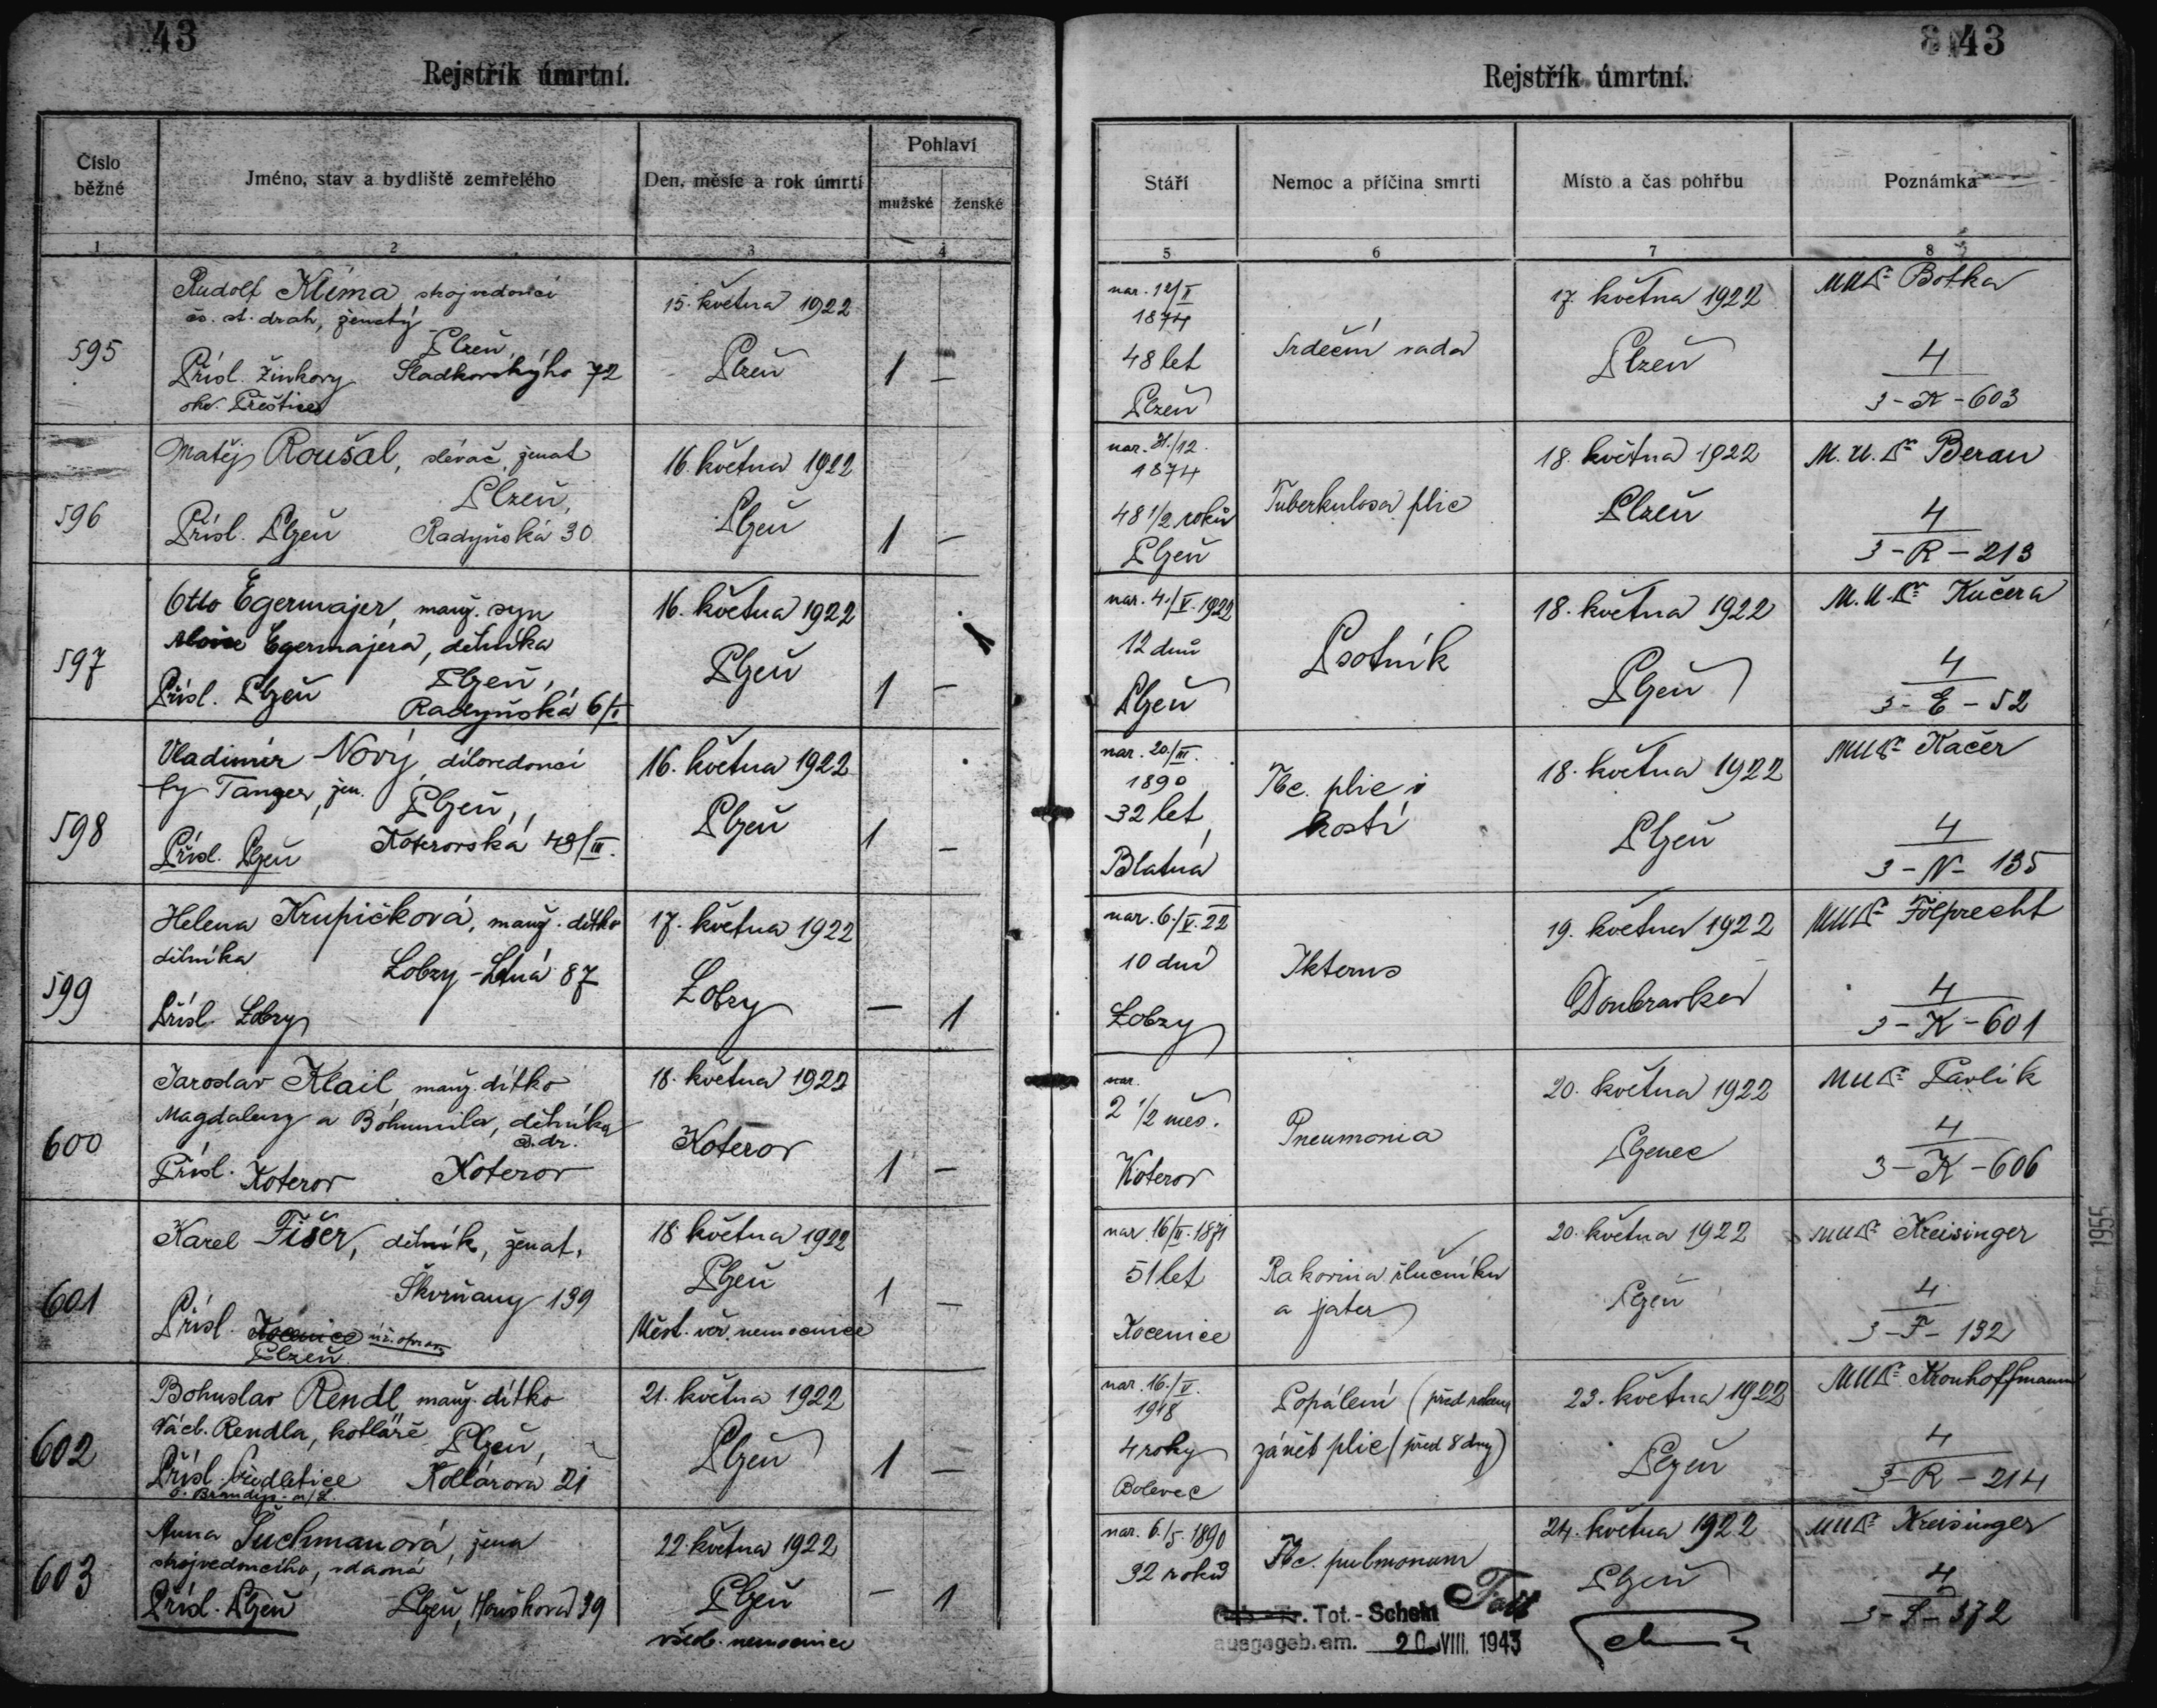 43
Rejstřík úmrtní.
Číslo běžné
Jméno, stav a bydliště zemřelého
Den, měsíc a rok úmrtí
Pohlaví
mužské
ženské
1
2
3
4
595
Rudolf Klíma, strojvedoucí
čs. st. drah, ženatý
Plzeň,
Přísl. Žinkovy Sladkovského 72
okr. Přeštice
15. května 1922
Plzeň
1 —
596
Matěj Roušal, slévač, ženat
Plzeň,
Přísl. Plzeň Radyňská 30
16. května 1922
Plzeň
1 —
597
Otto Egermajer, manž. syn
Egermajera, dělníka
Plzeň,
Přísl. Plzeň Radyňská 6/I
16. května 1922
Plzeň
1 —
598
Vladimír Nový, dílovedoucí
fy Tanger, žen.
Plzeň,
Přísl. Plzeň Koterovská 48/III.
16. května 1922
Plzeň
1 —
599
Helena Krupičková, manž. dítko
dělníka
Lobzy - Letná 87
Přísl. Lobzy
17. května 1922
Lobzy
— 1
600
Jaroslav Klail, manž. dítko
Magdaleny a Bohumila, dělníka
č. dr.
Přísl. Koterov Koterov
18. května 1922
Koterov
1 —
601
Karel Fišer, dělník, ženat.
Škvrňany 139
Přísl. Kocenice úř. oprav.
Plzeň
18. května 1922
Plzeň
Měst. veř. nemocnice
1 —
602
Bohuslav Rendl, manž. dítko
Václ. Rendla, kotláře
Plzeň,
Přísl. Kollárova 21
o. Brandýs n/L.
21. května 1922
Plzeň
1 —
603
Anna Suchmanová, žena
strojvedoucího, vdaná
Přísl. Plzeň Plzeň, Houškova 39
22. května 1922
Plzeň
všeob. nemocnice
— 1
43
Rejstřík úmrtní.
Stáří
Nemoc a příčina smrti
Místo a čas pohřbu
Poznámka
5
6
7
8
nar. 12/V
1874
48 let
Plzeň
Srdeční vada
17. května 1922
Plzeň
MUDr Botka
4
3 - K - 603
nar. /12.
1874
48 1/2 roků
Plzeň
Tuberkulosa plic
18. května 1922
Plzeň
M. U. Dr Beran
4
3 - R - 213
nar. 4./V. 1922
12 dnů
Plzeň
Psotník
18. května 1922
Plzeň
M. U. Dr Kučera
4
3 - E - 52
nar. 20./III.
1890
32 let
Blatná
Tbc. plic i
kostí
18. května 1922
Plzeň
MUDr Kačer
4
3 - N - 135
nar. 6./V. 22
10 dní
Lobzy
Ikterus
19. května 1922
Doubravka
MUDr Fölprecht
4
3 - K - 601
nar.
2 1/2 měs.
Koterov
Pneumonia
20. května 1922
Plzenec
MUDr Pavlík
4
3 - K - 606
nar. 16/II. 1871
51 let
Kocenice
Rakovina žlučníku
a jater
20. května 1922
Plzeň
MUDr Kreisinger
4
3 - F - 132
nar. 16./V.
1918
4 roky
Bolevec
Popálení (před rokem)
zánět plic (před 8 dny)
23. května 1922
Plzeň
MUDr Kronhoffmann
4
3 - R - 214
nar. 6./5. 1890
32 roků
Tbc. pulmonum
24. května 1922
Plzeň
MUDr Kreisinger
4
3 - S - 372
Tot.-Schein
ausgegeb. am. 20. VIII. 1943
1955